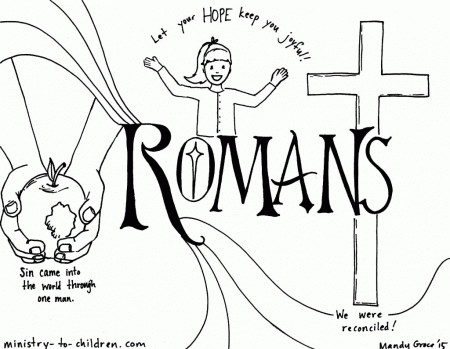 Let your HOPE keep you joyful!
ROMANS
Sin came into
the world through
one man.
We were
reconciled!
ministry-to-children.com
Mandy Groce '15